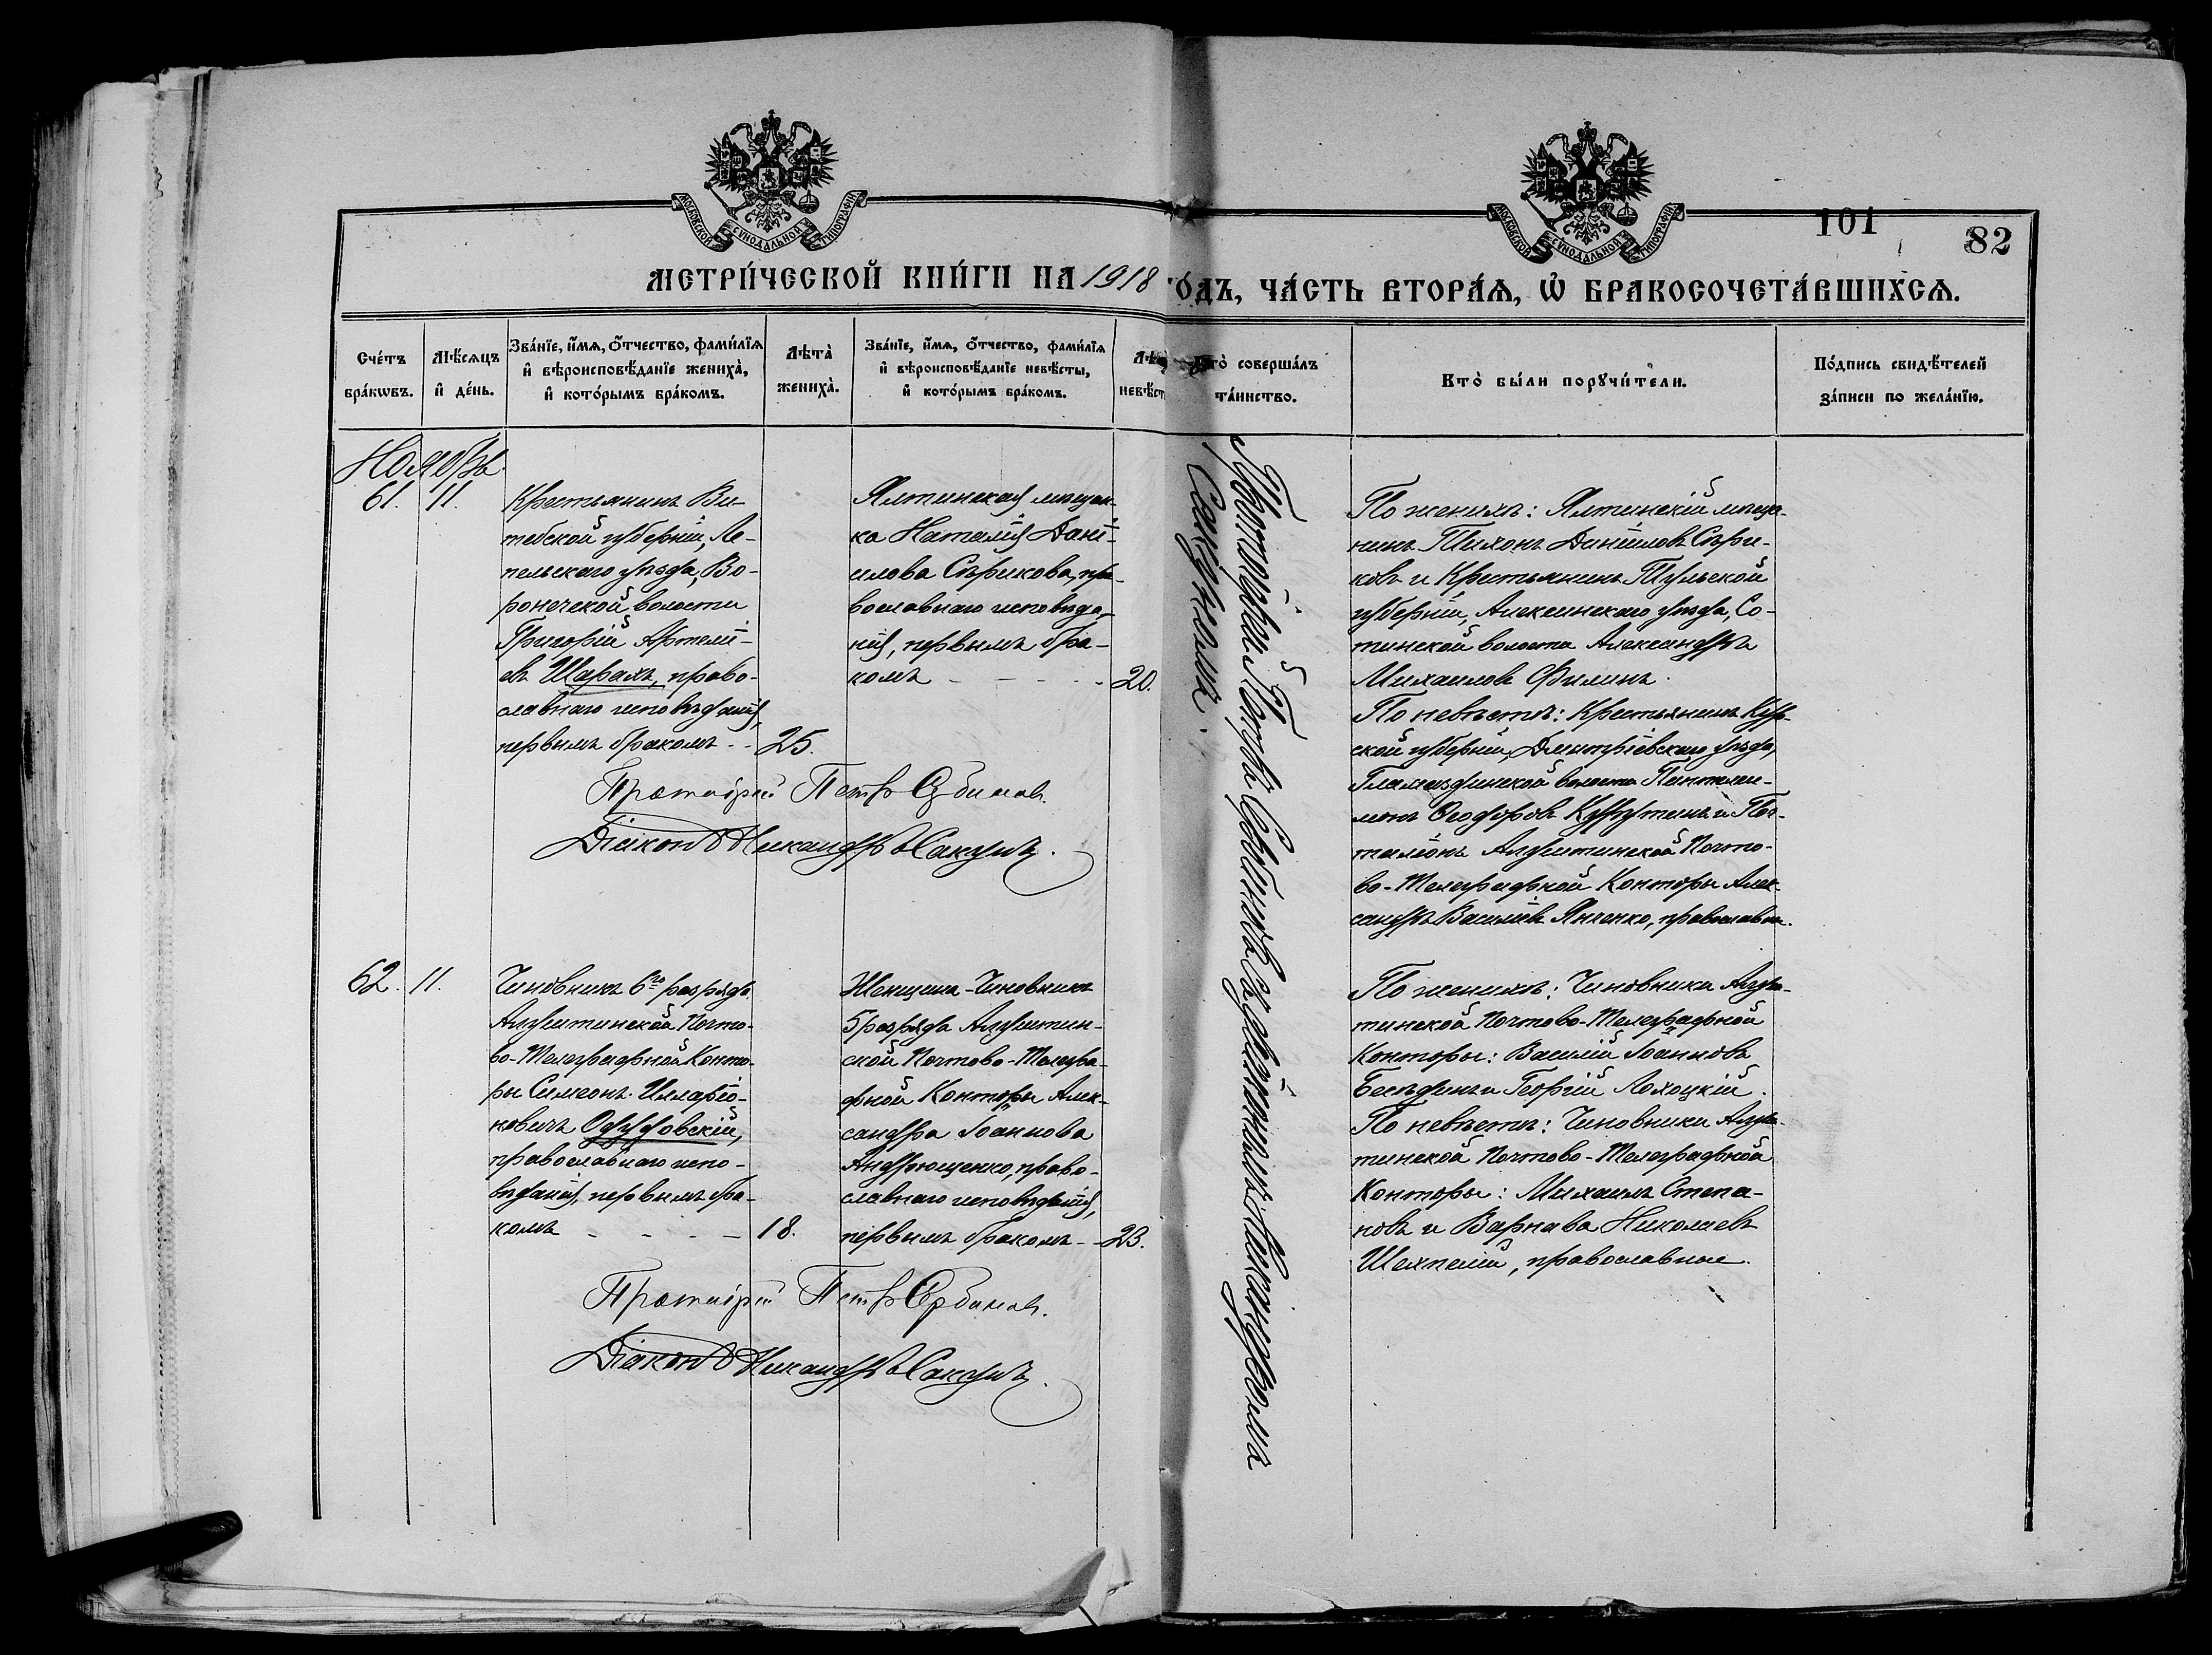 МОСКОВСКОЙ СѴНОДАЛЬНОЙ ТИПОГРАФІИ.
МОСКОВСКОЙ СѴНОДАЛЬНОЙ ТИПОГРАФІИ.
101
82
МЕТРИ́ЧЕСКОЙ КНИ́ГИ НА 1918 ГО́ДЪ, ЧА́СТЬ ВТОРА́Ѧ, Ѡ҆ БРАКОСОЧЕТА́ВШИХСѦ.
Сче́тъ
бра́кѡвъ.
Мѣ́сѧцъ
и҆ де́нь.
Зва́нїе, и҆́мѧ, ѻ҆́тчество, фами́лїѧ
и҆ вѣроисповѣ́данїе жениха̀,
и҆ кото́рымъ бра́комъ.
Лѣта̀
жениха̀.
Зва́нїе, и҆́мѧ, ѻ҆́тчество, фами́лїѧ
и҆ вѣроисповѣ́данїе невѣ́сты,
и҆ кото́рымъ бра́комъ.
Лѣ
невѣ́ст
Кто̀ соверша́лъ
та́инство.
Кто̀ бы́ли порꙋчи́тели.
По́дпись свидѣ́телей
за́писи по жела́нїю.
Ноябрь
61. 11.
Крестьянинъ Ви-
тебской губерніи, Ле-
пельскаго уѣзда, Во-
ронечской волости
Григорій Артемі-
евъ Шарахъ, право-
славнаго исповѣданія,
первымъ бракомъ - - 25.
Ялтинская мѣщан-
ка Наталія Дані-
илова Сѣрикова, пра-
вославнаго исповѣда-
нія, первымъ бра-
комъ - - - - 20.
Протоіерей Петръ Сербиновъ съ діакономъ Никандромъ
Сакунъ
По женихѣ: Ялтинскій мѣща-
нинъ Тихонъ Даніиловъ Сѣри-
ковъ и Крестьянинъ Тульской
губерніи, Алексинскаго уѣзда, Со-
тинской волости Александръ
Михаиловъ Филинъ.
По невѣстѣ: Крестьянинъ Кур-
ской губерніи, Дмитріевскаго уѣзда,
волости Пантелеи-
монъ Ѳеодоровъ и Поч-
таліонъ Алуштинской Почто-
во-Телеграфной Конторы Алек-
сандръ Василіевъ Янченко, православн.
Протоіерей Петръ Сербиновъ.
Діаконъ Никандръ Сакунъ.
62. 11.
Чиновникъ 6го разряда
Алуштинской Почто-
во-Телеграфной Конто-
ры Симеонъ Иларіо-
новичъ Одудовскій,
православнаго испо-
вѣданія, первымъ бра-
комъ - - - - 18.
Женщина-Чиновникъ
5 разряда Алуштин-
ской Почтово-Телегра-
фной Конторы Алек-
сандра Іоаннова
Андрющенко, право-
славнаго исповѣданія,
первымъ бракомъ - - 23.
По женихѣ: Чиновники Алуш-
тинской Почтово-Телеграфной
Конторы: Василій Іоанновъ
Бесѣдинъ и Георгій Лохоцкій.
По невѣстѣ: Чиновники Алуш-
тинской Почтово-Телеграфной
Конторы: Михаилъ Степа-
новъ и Варнава Николаевъ
православные.
Протоіерей Петръ Сербиновъ.
Діаконъ Никандръ Сакунъ.